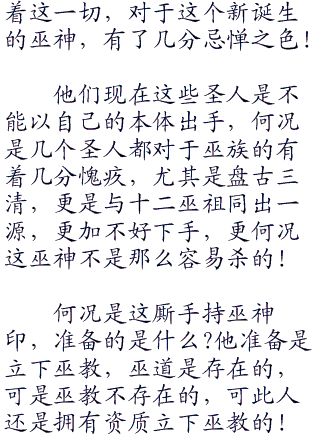 着这一切，对于这个新诞生
的巫神，有了几分忌惮之色！
他们现在这些圣人是不
能以自己的本体出手，何况
是几个圣人都对于巫族的有
着几分愧疚，尤其是盘古三
清，更是与十二巫祖同出一
源，更加不好下手，更何况
这巫神不是那么容易杀的！
何况是这厮手持巫神
印，准备的是什么?他准备是
立下巫教，巫道是存在的，
可是巫教不存在的，可此人
还是拥有资质立下巫教的！